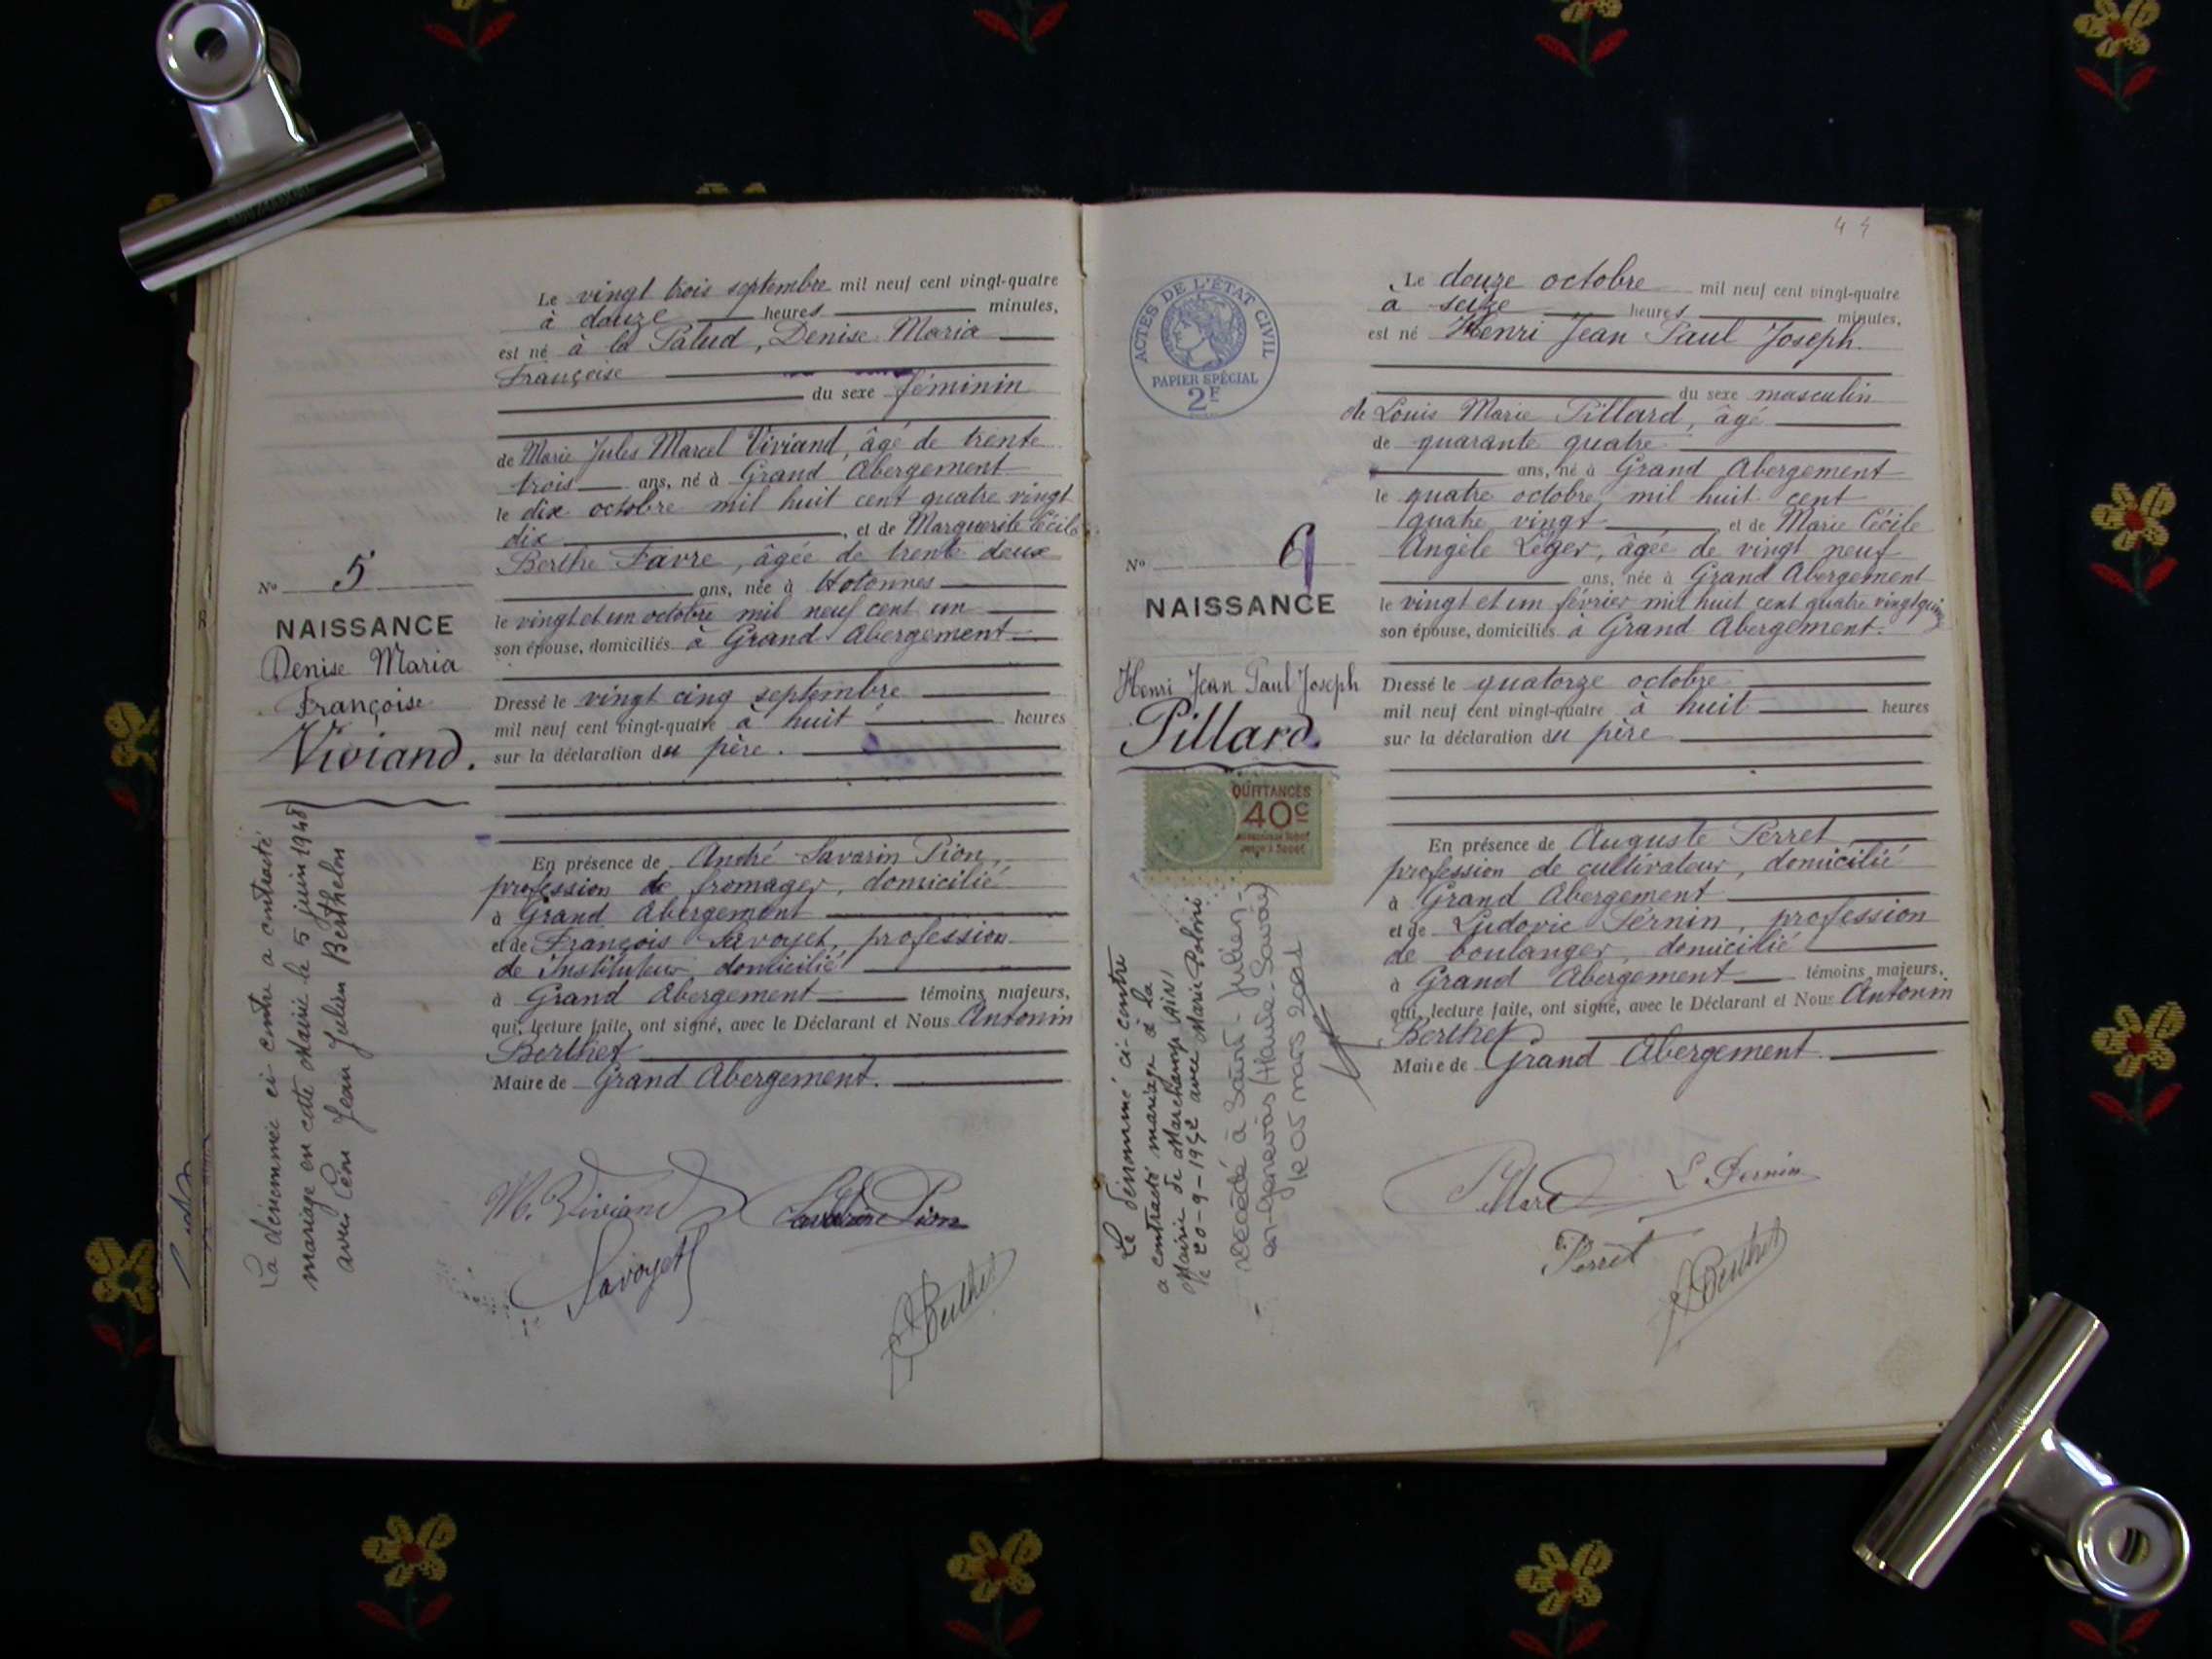 Le vingt trois septembre mil neuf cent vingt-quatre
à douze heures minutes,
est né à la Palud, Denise Maria
Françoise
du sexe féminin
de Marie Jules Marcel Viviand, âgé de trente
trois ans, né à Grand Abergement
le dix octobre mil huit cent quatre vingt
dix, et de Marguerite Cécile
Berthe Favre, âgée de trente deux
ans, née à Hotonnes
le vingt et un octobre mil neuf cent un
son épouse, domiciliés à Grand Abergement
Dressé le vingt cinq septembre
mil neuf cent vingt-quatre à huit heures
sur la déclaration du père.
En présence de André Savarin Pion,
profession de fromager, domicilié
à Grand Abergement
et de François Savoyet, profession
de Instituteur, domicilié
à Grand Abergement témoins majeurs,
qui, lecture faite, ont signé, avec le Déclarant et Nous Antonin
Berthet
Maire de Grand Abergement.
M. Viviand
Savarin Pion
Savoyet
A Berthet
No 5
NAISSANCE
Denise Maria
Françoise
Viviand.
La dénommée ci-contre a contracté
mariage en cette Mairie le 5 juin 1948
avec Léon Jean Julien Berthelon
44
ACTES DE L'ÉTAT CIVIL
PAPIER SPÉCIAL
2F
No 6
NAISSANCE
Henri Jean Paul Joseph
Pillard.
QUITTANCES
40c
Le dénommé ci-contre
a contracté mariage à la
Mairie de Marchamp (AIN)
le 20-9-1952 avec Marie
décédé à Saint-Julien-
en-Genevois (Haute-Savoie)
le 05 mars 2001
Le douze octobre mil neuf cent vingt-quatre
à seize heures minutes,
est né Henri Jean Paul Joseph
du sexe masculin
de Louis Marie Pillard, âgé
de quarante quatre
ans, né à Grand Abergement
le quatre octobre mil huit cent
quatre vingt et de Marie Cécile
Angèle Léger, âgée de vingt neuf
ans, née à Grand Abergement
le vingt et un février mil huit cent quatre vingt quinze
son épouse, domiciliés à Grand Abergement.
Dressé le quatorze octobre
mil neuf cent vingt-quatre à huit heures
sur la déclaration du père
En présence de Auguste Perret
profession de cultivateur, domicilié
à Grand Abergement
et de Ludovic Pernin, profession
de boulanger, domicilié
à Grand Abergement témoins majeurs,
qui, lecture faite, ont signé, avec le Déclarant et Nous Antonin
Berthet
Maire de Grand Abergement
Pillard
L. Pernin
Perret
A Berthet